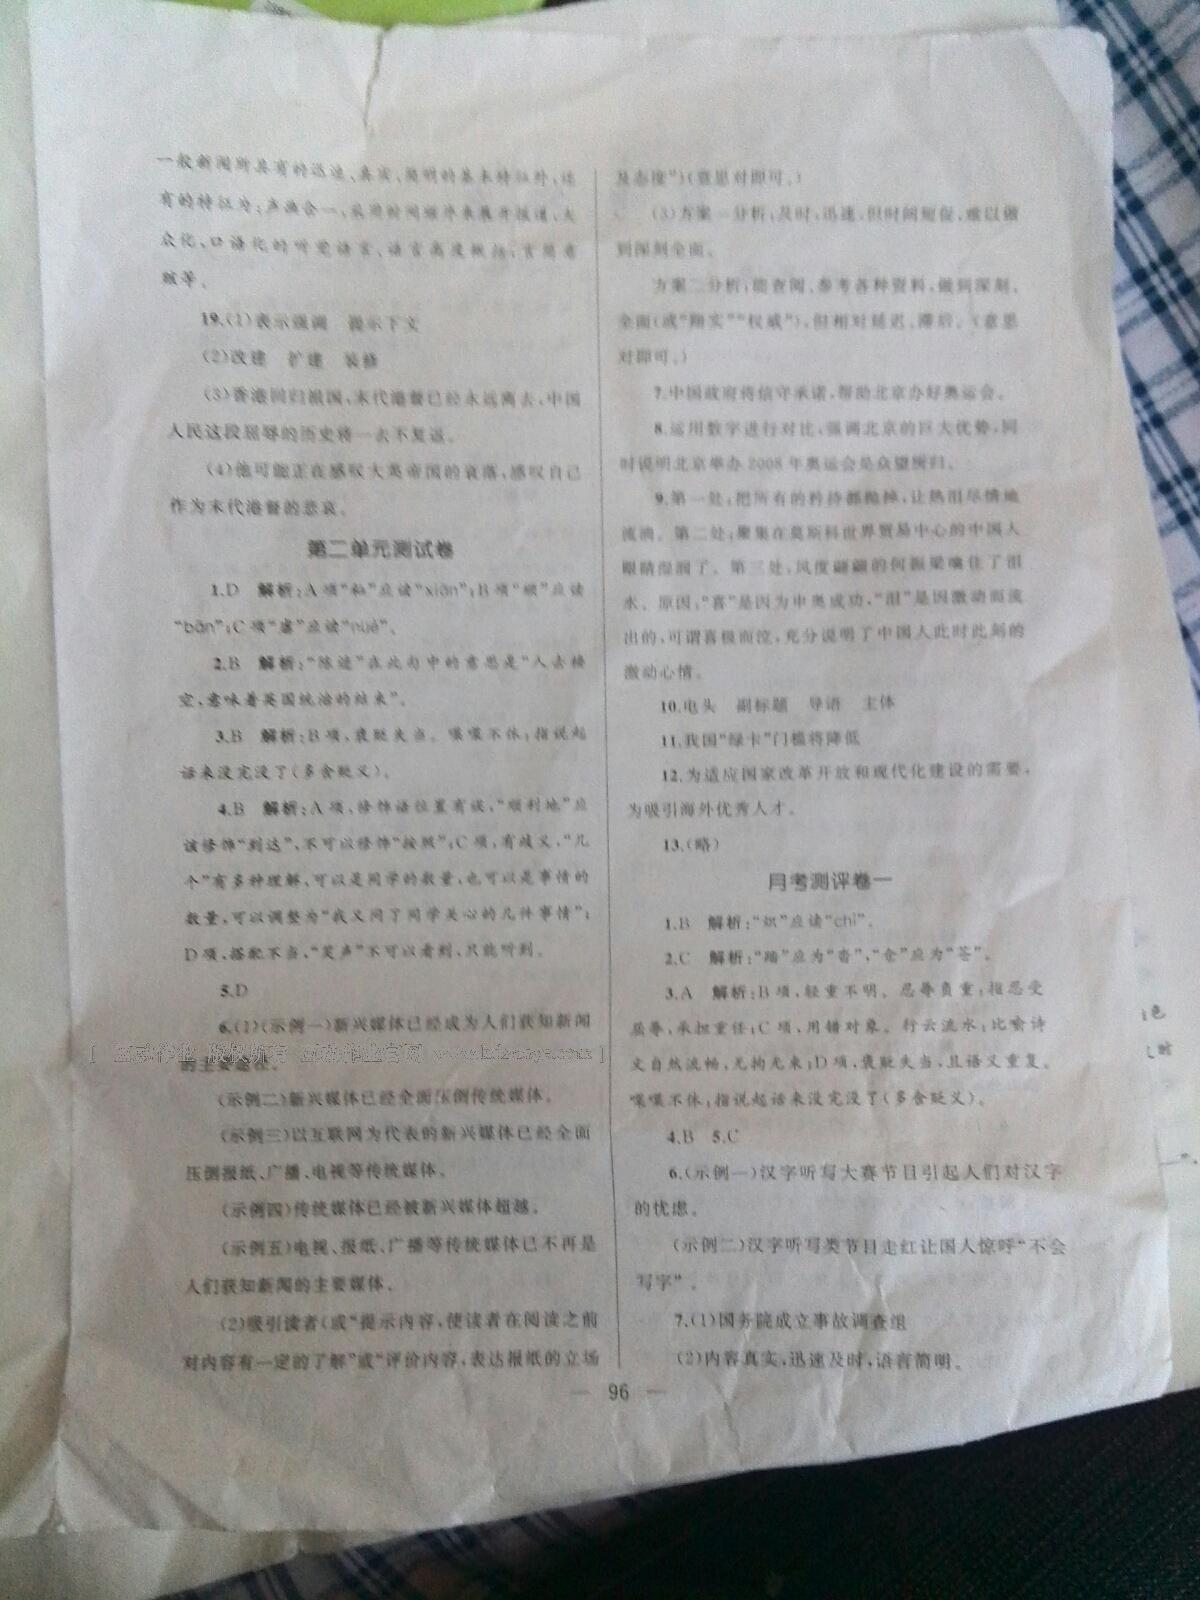 一般新闻所具有的迅速、真实、简明的基本特征外，还
有的特征为：声画合一，采用时间顺序来展开报道，大
众化、口语化的听觉语言，语言高度概括，言简意
赅等。
19.(1)表示强调　提示下文
(2)改建　扩建　装修
(3)香港回归祖国，末代港督已经永远离去，中国
人民这段屈辱的历史将一去不复返。
(4)他可能正在感叹大英帝国的衰落，感叹自己
作为末代港督的悲哀。
第二单元测试卷
1.D　解析：A项“ ”应读“xiān”；B项“ ”应读
“bān”；C项“虐”应读“nüè”。
2.B　解析：“陈迹”在此句中的意思是“人去楼
空，意味着英国统治的结束”。
3.B　解析：B项，褒贬失当。喋喋不休：指说起
话来没完没了(多含贬义)。
4.B　解析：A项，修饰语位置有误，“顺利地”应
该修饰“到达”，不可以修饰“按照”；C项，有歧义，“几
个”有多种理解，可以是同学的数量，也可以是事情的
数量，可以调整为“我又问了同学关心的几件事情”；
D项，搭配不当，“笑声”不可以看到，只能听到。
5.D
6.(1)(示例一)新兴媒体已经成为人们获知新闻
的主要途径。
(示例二)新兴媒体已经全面压倒传统媒体。
(示例三)以互联网为代表的新兴媒体已经全面
压倒报纸、广播、电视等传统媒体。
(示例四)传统媒体已经被新兴媒体超越。
(示例五)电视、报纸、广播等传统媒体已不再是
人们获知新闻的主要媒体。
(2)吸引读者(或“提示内容，使读者在阅读之前
对内容有一定的了解”或“评价内容，表达报纸的立场
及态度”)(意思对即可。)
(3)方案一分析：及时，迅速，但时间短促，难以做
到深刻全面。
方案二分析：能查阅、参考各种资料，做到深刻、
全面(或“翔实”“权威”)，但相对延迟、滞后。(意思
对即可。)
7.中国政府将信守承诺，帮助北京办好奥运会。
8.运用数字进行对比，强调北京的巨大优势，同
时说明北京举办2008年奥运会是众望所归。
9.第一处：把所有的矜持都抛掉，让热泪尽情地
流淌。第二处：聚集在莫斯科世界贸易中心的中国人
眼睛湿润了。第三处：风度翩翩的何振梁噙住了泪
水。原因：“喜”是因为申奥成功，“泪”是因激动而流
出的，可谓喜极而泣，充分说明了中国人此时此刻的
激动心情。
10.电头　副标题　导语　主体
11.我国“绿卡”门槛将降低
12.为适应国家改革开放和现代化建设的需要，
为吸引海外优秀人才。
13.(略)
月考测评卷一
1.B　解析：“炽”应读“chì”。
2.C　解析：“踏”应为“沓”，“仓”应为“苍”。
3.A　解析：B项，轻重不明。忍辱负重：指忍受
屈辱，承担重任；C项，用错对象。行云流水：比喻诗
文自然流畅，无拘无束；D项，褒贬失当，且语义重复。
喋喋不休：指说起话来没完没了(多含贬义)。
4.B　5.C
6.(示例一)汉字听写大赛节目引起人们对汉字
的忧虑。
(示例二)汉字听写类节目走红让国人惊呼“不会
写字”。
7.(1)国务院成立事故调查组
(2)内容真实，迅速及时，语言简明。
— 96 —
色
时